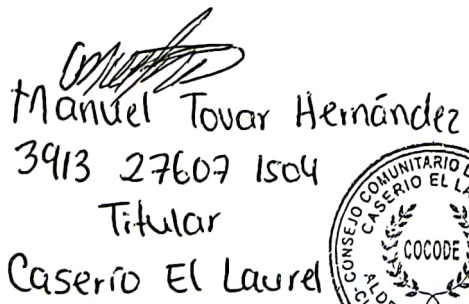 Manuel Tovar Hernández
3913 27607 1504
Titular
Caserío El Laurel
CONSEJO COMUNITARIO
CASERIO EL
COCODE